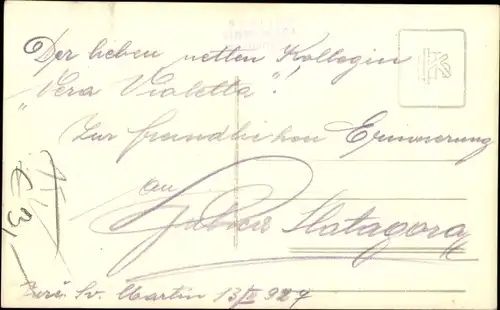 Der lieben netten Kollegin
"Vera Violetta"!
Zur freundlichen Erinnerung
an
Slatagora
Sv. Martin 13/II 927